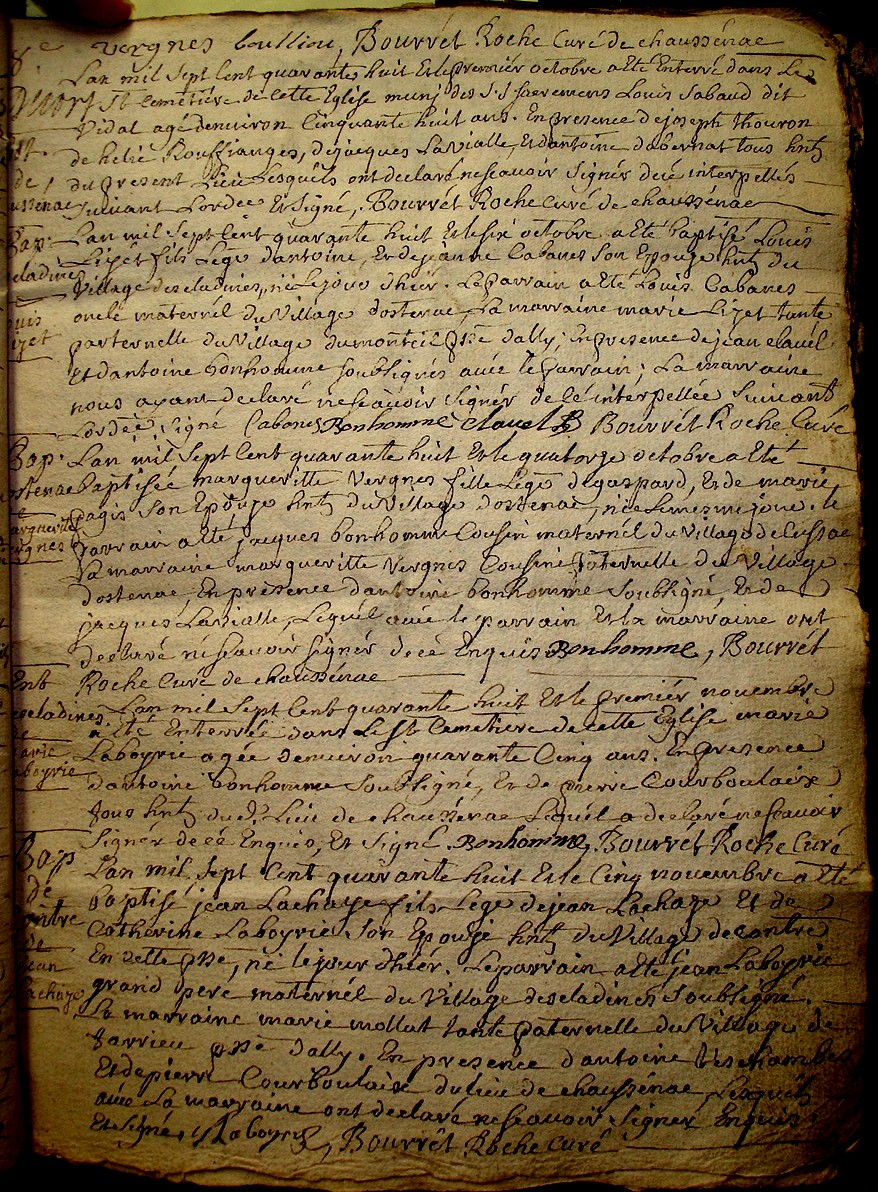 vergnes boullion, Bourrét Roche Curé de chaussénac
Lan mil Sept Cent quarante huit Et le premiér octobre a Eté Enterré dans Le
St Cemetiére de cette Eglise muni des S.S. sacremens Louis Sabaud dit
Vidal agé denviron Cinquante huit ans. En presence de joseph Thouron
de helie Rouffianges, de jacques La Vialle, Et dantoine dabernat tous hnts
du present Lieu Lesquéls ont declaré ne scavoir Signér de cé interpellés
Suivant Lordce Et Signé, Bourrét Roche Curé de chaussénac
Bap.
Lan mil Sept Cent quarante huit Et le six octobre a Eté baptisé Louis
Lizét fils Lege dantoine, Et de jeanne Cabanes Son Epouze hnts du
Village descladines, né Le jour dhier. Le parrain a Eté Louis Cabanes
oncle maternél du Village dostenac, La marraine marie Lizet tante
parternelle du Village du monteil psse dally; En presence de jean clavél
Et dantoine bonhomme soubsignés avéc le parrain; La marraine
nous ayant declaré ne scavoir Signér de cé interpellée Suivant
Lordce Signé Cabanes Bonhomme Clavel Bourrét Roche Curé
Bap.
Lan mil Sept Cent quarante huit Et le quatorze octobre a Eté
ostenac baptisée margueritte Vergnes fille Lege de gaspard, Et de marie
pagis Son Epouze hnts du Village dostenac, née Le mesme jour. le
parrain a Eté jacques bonhomme Cousin maternél du Village de Cussac
La marraine margueritte Vergnes Cousine paternelle du Village
dostenac, En presence dantoine bonhomme Soubsigné, Et de
jacques La Vialle, Lequél avéc le parrain Et la marraine ont
declaré ne scavoir signér de cé Enquis Bonhomme, Bourrét
Roche Curé de chaussénac
Ent
Lan mil Sept Cent quarante huit Et le premiér novembre
descladines. a Eté Enterrée dans Le St Cemetiére de cette Eglise marie
Laboyrie agée denviron quarante Cinq ans. En presence
dantoine bonhomme Soubsigné, Et de pierre Courboulaix
Tous hnts du dt Lieu de chaussénac Lequél a declaré ne scavoir
Signér de cé Enquis, Et Signé. Bonhomme, Bourrét Roche Curé
Bap
Lan mil Sept Cent quarante huit Et le Cinq novembre a Eté
de
baptisé jean Lachaze fils Lege de jean Lachaze Et de
Catherine Laboyrie Son Epouze hnts du Village de contre
En cette psse, né le jour dhiér. Le parrain a Eté jean Laboyrie
grand pere maternél du Village descladines Soubsigné.
La marraine marie mollat tante paternelle du Village de
Jarrieu psse dally. En presence dantoine
Et de pierre Courboulaix du Lieu de chaussénac, Lesquéls
avéc La marraine ont declaré ne scavoir Signér Enquis
Et Signé, Laboyrie, Bourrét Roche Curé